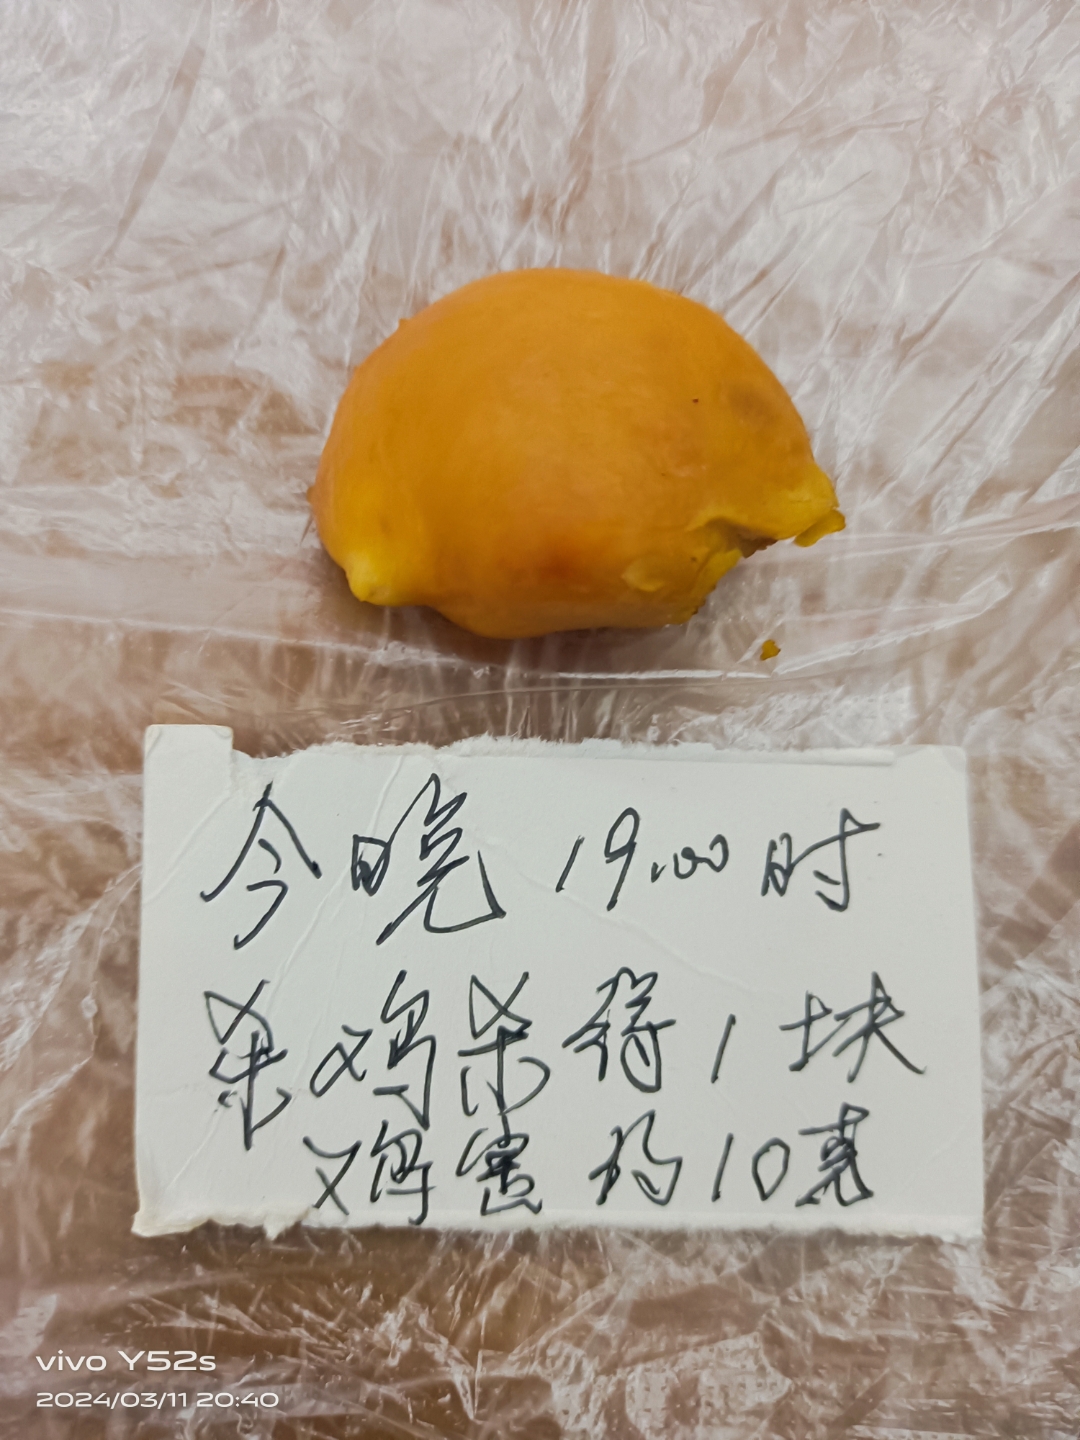 今晚19.00时
杀鸡杀得1块
鸡宝约10克
vivo Y52s
2024/03/11 20:40